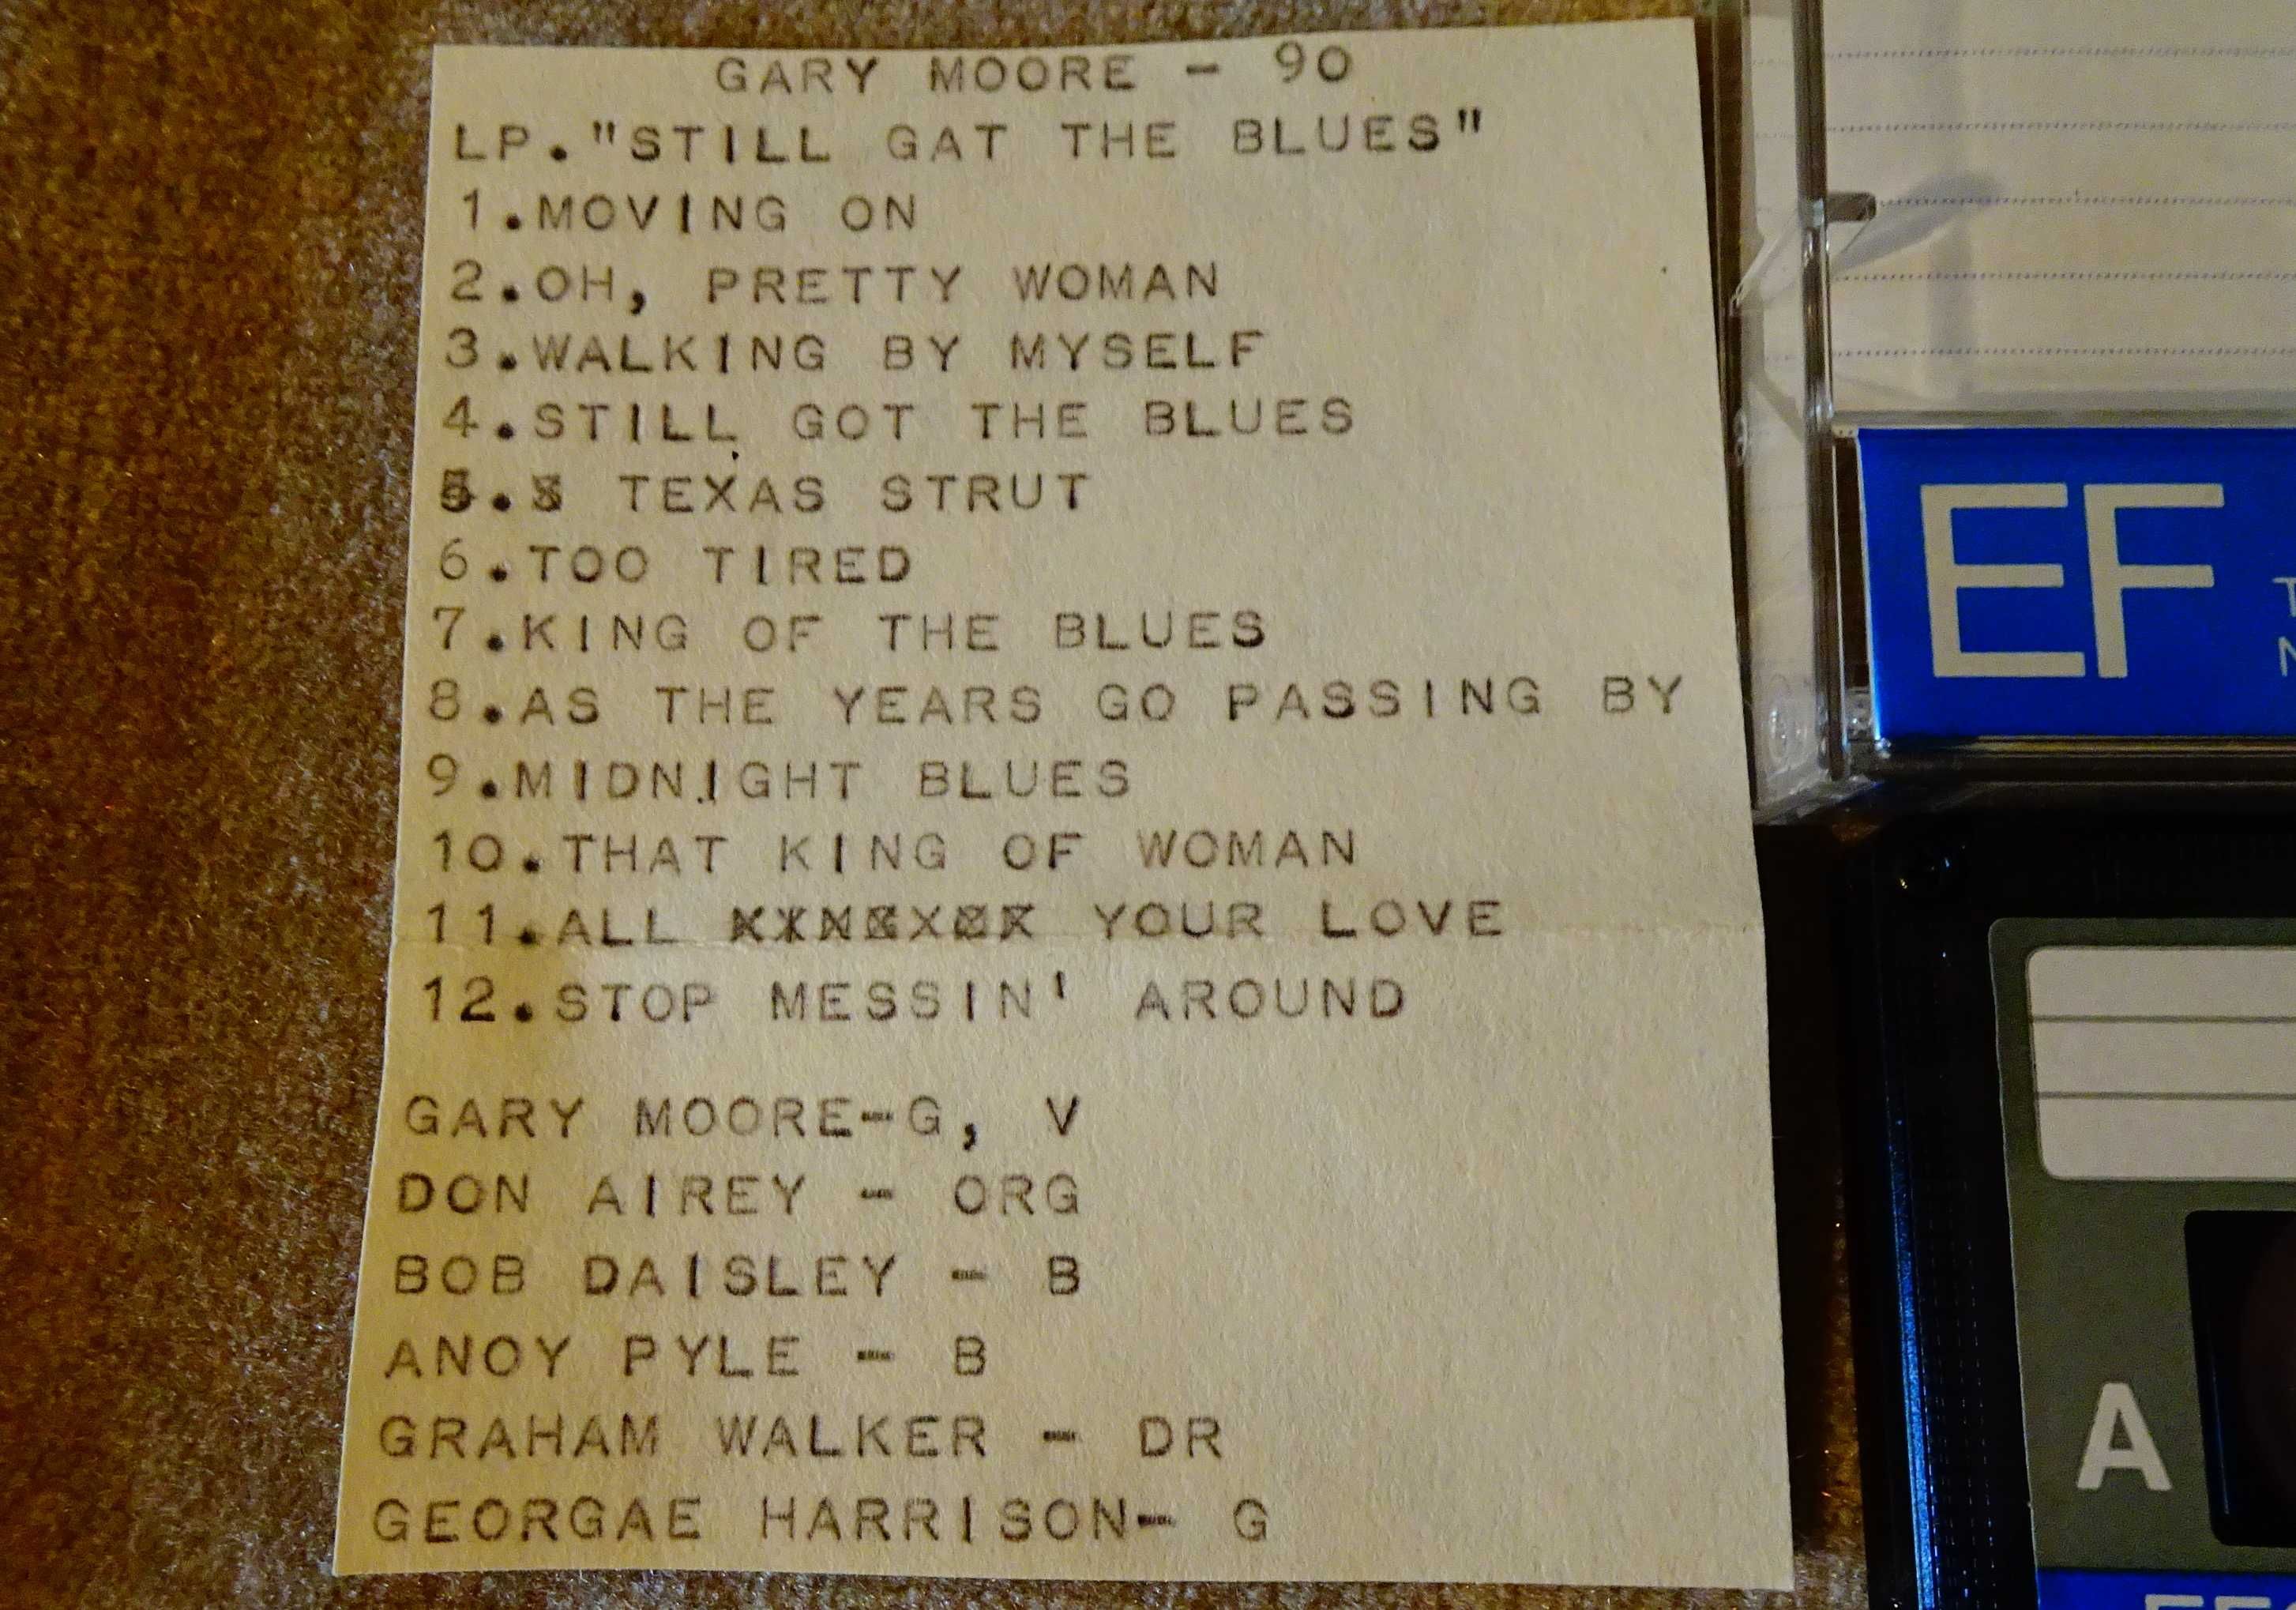 GARY MOORE - 90
LP."STILL GAT THE BLUES"
1.MOVING ON
2.OH, PRETTY WOMAN
3.WALKING BY MYSELF
4.STILL GOT THE BLUES
5. TEXAS STRUT
6.TOO TIRED
7.KING OF THE BLUES
8.AS THE YEARS GO PASSING BY
9.MIDNIGHT BLUES
10.THAT KING OF WOMAN
11.ALL YOUR LOVE
12.STOP MESSIN' AROUND
GARY MOORE-G, V
DON AIREY - ORG
BOB DAISLEY - B
ANOY PYLE - B
GRAHAM WALKER - DR
GEORGAE HARRISON- G
EF
A